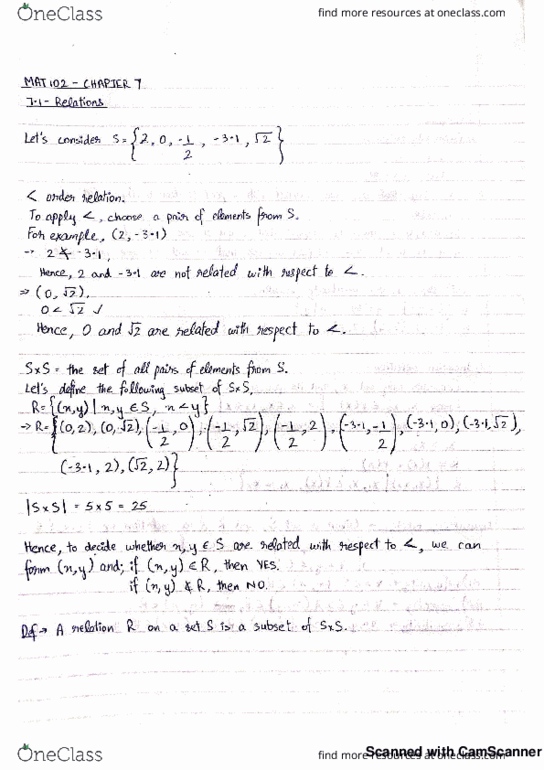 OneClass
find more resources at oneclass.com
MAT102 - CHAPTER 7
7.1 - Relations
Let's consider S = {2, 0, -1/2, -3.1, √2}
< order relation.
To apply <, choose a pair of elements from S.
For example, (2, -3.1)
→ 2 ≮ -3.1,
Hence, 2 and -3.1 are not related with respect to <.
⇒ (0, √2),
0 < √2 ✓
Hence, 0 and √2 are related with respect to <.
S×S = the set of all pairs of elements from S.
Let's define the following subset of S×S,
R = {(x,y) | x,y ∈ S, x < y}
→ R = {(0,2), (0,√2), (-1/2, 0), (-1/2, √2), (-1/2, 2), (-3.1, -1/2), (-3.1, 0), (-3.1, √2),
(-3.1, 2), (√2, 2)}
|S×S| = 5×5 = 25
Hence, to decide whether x,y ∈ S are related with respect to <, we can
form (x,y) and; if (x,y) ∈ R, then YES.
if (x,y) ∉ R, then NO.
Def → A relation R on a set S is a subset of S×S.
OneClass
find more resources at oneclass.com
Scanned with CamScanner